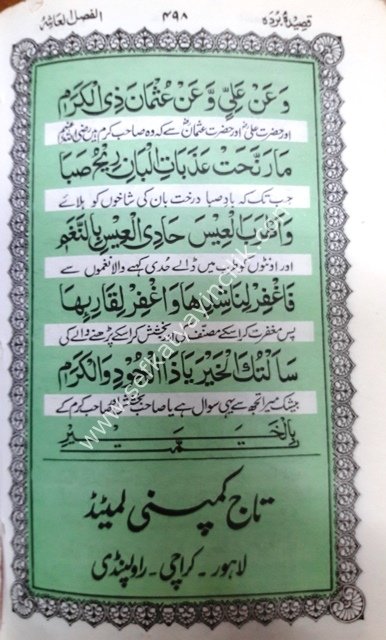 قصیدۂ بردہ ۴۹۸ الفصل العاشر
وَعَنْ عَلِيٍّ وَّعَنْ عُثْمَانَ ذِی الْكَرَمِ
اور حضرت علیؓ اور حضرت عثمانؓ سے کہ وہ صاحب کرم ہیں
مَارَنَّحَتْ عَذَبَاتِ الْبَانِ رِيْحُ صَبَا
جب تک کہ بادِ صبا درخت بان کی شاخوں کو ہلائے
وَاَطْرَبَ الْعِيْسَ حَادِی الْعِيْسِ بِالنَّغَمِ
اور اونٹوں کو طرب میں ڈالے حُدی کہنے والا نغموں سے
فَاغْفِرْ لِنَاشِدِهَا وَاغْفِرْ لِقَارِئِهَا
پس مغفرت کر اسکے مصنف کی اور بخشش کر اسکے پڑھنے والے کی
سَاَلْتُكَ الْخَيْرَ يَا ذَا الْجُوْدِ وَالْكَرَمِ
بیشک میرا تجھ سے یہی سوال ہے یا صاحب بخشش اور صاحب کرم کے
بِالْخَيْرِ
تاج کمپنی لمیٹڈ
لاہور - کراچی - راولپنڈی
www.safkatyayincilik.com